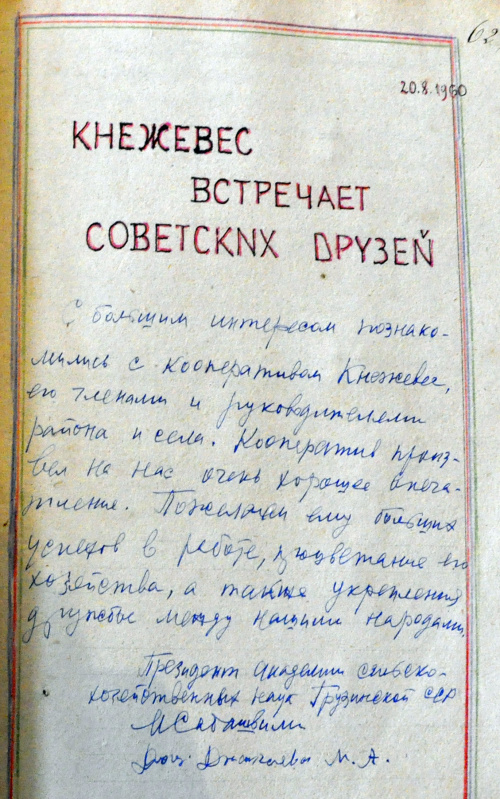 62
20.8.1960
КНЕЖЕВЕС
ВСТРЕЧАЕТ
СОВЕТСКИХ ДРУЗЕЙ
С большим интересом познако-
мились с кооперативом Кнежевес,
его членами и руководителями
района и села. Кооператив произ-
вел на нас очень хорошее впеча-
тление. Пожелаем ему больших
успехов в работе, процветание его
хозяйства, а также укрепления
дружбы между нашими народами.
Президент Академии сельско-
хозяйственных наук Грузинской ССР
М. А.